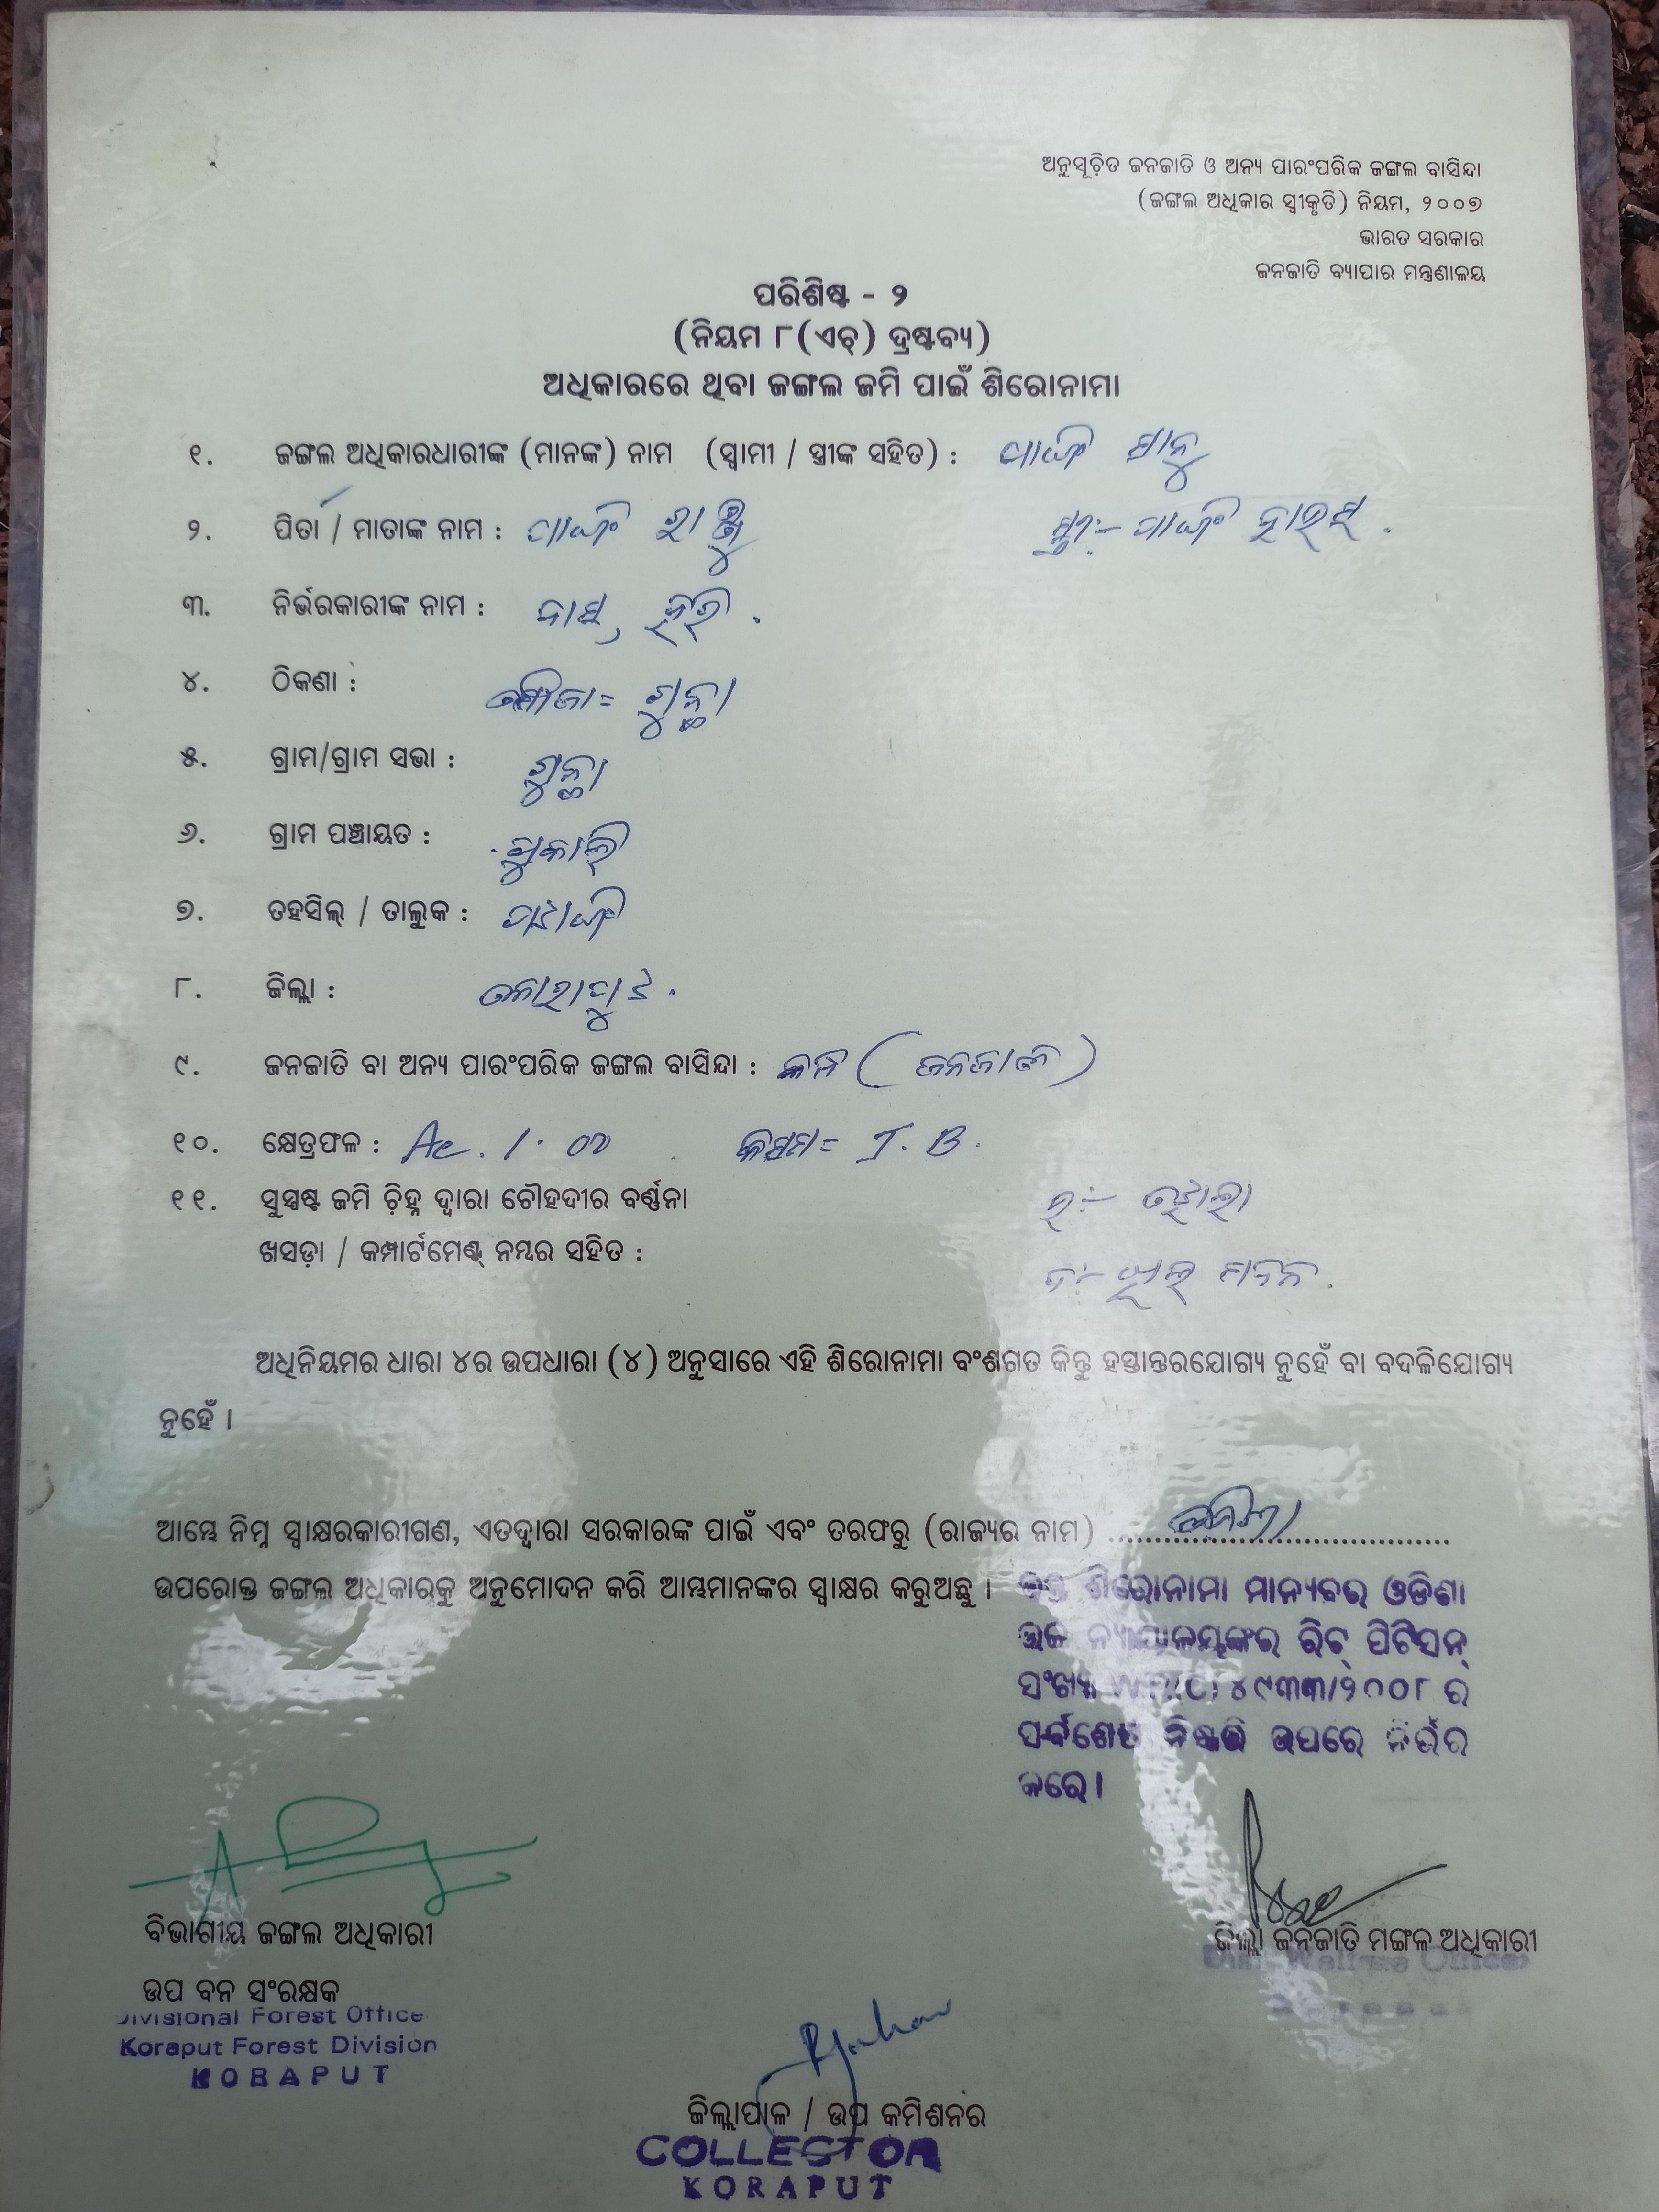 ଅନୁସୂଚ଼ିତ ଜନଜାତି ଓ ଅନ୍ୟ ପାରଂପରିକ ଜଙ୍ଗଲ ବାସିନ୍ଦା
(ଜଙ୍ଗଲ ଅଧିକାର ସ୍ୱୀକୃତି) ନିୟମ, ୨୦୦୭
ଭାରତ ସରକାର
ଜନଜାତି ବ୍ୟାପାର ମନ୍ତ୍ରଣାଳୟ
ପରିଶିଷ୍ଟ - ୨
(ନିୟମ ୮(ଏଚ୍) ଦ୍ରଷ୍ଟବ୍ୟ)
ଅଧିକାରରେ ଥିବା ଜଙ୍ଗଲ ଜମି ପାଇଁ ଶିରୋନାମା
୧. ଜଙ୍ଗଲ ଅଧିକାରଧାରୀଙ୍କ (ମାନଙ୍କ) ନାମ (ସ୍ୱାମୀ / ସ୍ତ୍ରୀଙ୍କ ସହିତ) :
୨. ପିତା / ମାତାଙ୍କ ନାମ :
୩. ନିର୍ଭରକାରୀଙ୍କ ନାମ :
୪. ଠିକଣା : ମୌଜା =
୫. ଗ୍ରାମ/ଗ୍ରାମ ସଭା :
୬. ଗ୍ରାମ ପଞ୍ଚାୟତ :
୭. ତହସିଲ୍ / ତାଲୁକ : ପଟାଙ୍ଗି
୮. ଜିଲ୍ଲା : କୋରାପୁଟ.
୯. ଜନଜାତି ବା ଅନ୍ୟ ପାରଂପରିକ ଜଙ୍ଗଲ ବାସିନ୍ଦା : (ଜନଜାତି)
୧୦. କ୍ଷେତ୍ରଫଳ : Ac. 1.00 କିସମ = J.B.
୧୧. ସୁସ୍ପଷ୍ଟ ଜମି ଚ଼ିହ୍ନ ଦ୍ୱାରା ଚୌହଦୀର ବର୍ଣ୍ଣନା
ଖସଡ଼ା / କମ୍ପାର୍ଟମେଣ୍ଟ୍ ନମ୍ବର ସହିତ :
ଅଧିନିୟମର ଧାରା ୪ର ଉପଧାରା (୪) ଅନୁସାରେ ଏହି ଶିରୋନାମା ବଂଶଗତ କିନ୍ତୁ ହସ୍ତାନ୍ତରଯୋଗ୍ୟ ନୁହେଁ ବା ବଦଳିଯୋଗ୍ୟ
ନୁହେଁ ।
ଆମ୍ଭେ ନିମ୍ନ ସ୍ୱାକ୍ଷରକାରୀଗଣ, ଏତଦ୍ୱାରା ସରକାରଙ୍କ ପାଇଁ ଏବଂ ତରଫରୁ (ରାଜ୍ୟର ନାମ) ....................................
ଉପରୋକ୍ତ ଜଙ୍ଗଲ ଅଧିକାରକୁ ଅନୁମୋଦନ କରି ଆମ୍ଭମାନଙ୍କର ସ୍ୱାକ୍ଷର କରୁଅଛୁ ।
ଉକ୍ତ ଶିରୋନାମା ମାନ୍ୟବର ଓଡିଶା
ଉଚ୍ଚ ନ୍ୟାୟାଳୟଙ୍କର ରିଟ୍ ପିଟିସନ୍
ସଂଖ୍ୟା W.P.(C) ୪୯୩୩/୨୦୦୮ ର
ସର୍ବଶେଷ ନିଷ୍ପତ୍ତି ଉପରେ ନିର୍ଭର
କରେ ।
ବିଭାଗୀୟ ଜଙ୍ଗଲ ଅଧିକାରୀ
ଜିଲ୍ଲା ଜନଜାତି ମଙ୍ଗଳ ଅଧିକାରୀ
Dist. Welfare Officer
ଉପ ବନ ସଂରକ୍ଷକ
Divisional Forest Office
Koraput Forest Division
KORAPUT
ଜିଲ୍ଲାପାଳ / ଉପ କମିଶନର
COLLECTOR
KORAPUT